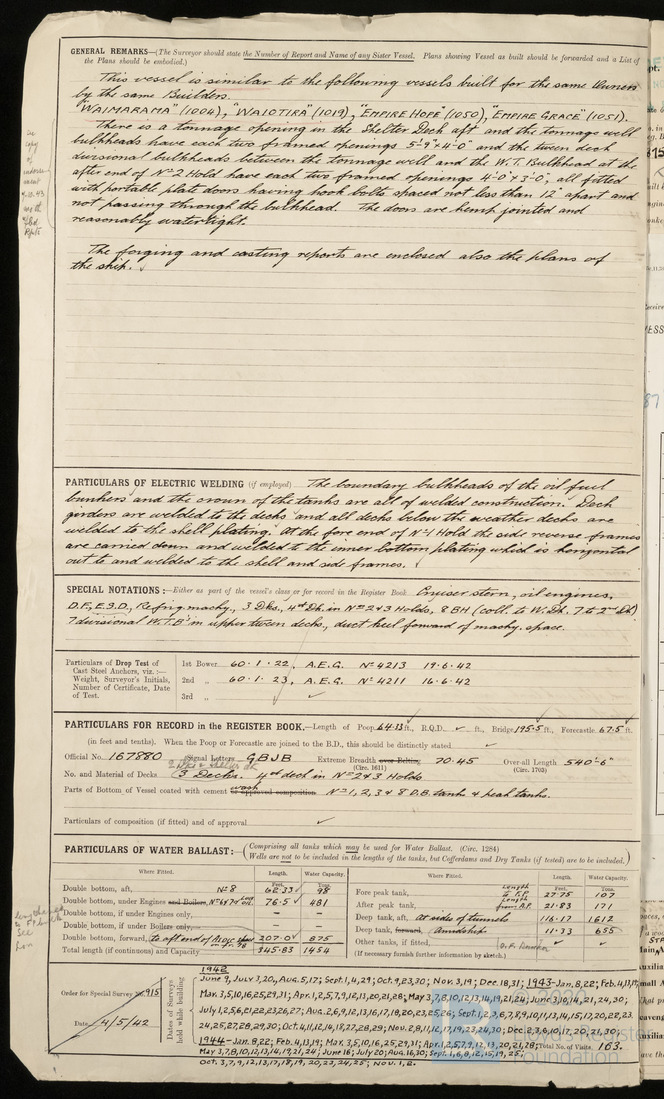 GENERAL REMARKS—(The Surveyor should state the Number of Report and Name of any Sister Vessel. Plans showing Vessel as built should be forwarded and a List of
the Plans should be embodied.)
This vessel is similar to the following vessels built for the same Owners
by the same Builders.
"WAIMARAMA" (1004), "WAIOTIRA" (1019), "EMPIRE HOPE" (1050), "EMPIRE GRACE" (1051).
There is a tonnage opening in the Shelter Deck aft and the tonnage well
bulkheads have each two framed openings 5'-9" x 4'-0" and the tween deck
divisional bulkheads between the tonnage well and the W.T. Bulkhead at the
after end of No 2 Hold have each two framed openings 4'-0" x 3'-0", all fitted
with portable plate doors having hook bolts spaced not less than 12" apart and
not passing through the bulkhead. The doors are hemp jointed and
reasonably watertight.
The forging and casting reports are enclosed also the plans of
the ship.
PARTICULARS OF ELECTRIC WELDING (if employed) The boundary bulkheads of the oil fuel
bunkers and the crown of the tanks are all of welded construction. Deck
girders are welded to the decks and all decks below the weather decks are
welded to the shell plating. At the fore end of No 1 Hold the side reverse frames
are carried down and welded to the inner bottom plating which is horizontal
out to and welded to the shell and side frames.
SPECIAL NOTATIONS:—Either as part of the vessel's class or for record in the Register Book. Cruiser stern, oil engines.
D.F., E.S.D., Refrng machy., 3 Dks, 4th Dk in Nos 2 & 3 Holds, 8 BH (coll. to W. Dk. 7 to 2nd Dk)
7 divisional W.T.B in upper tween decks, duct keel forward of machy. space.
Particulars of Drop Test of
Cast Steel Anchors, viz.:—
Weight, Surveyor's Initials,
Number of Certificate, Date
of Test.
1st Bower 60.1.22, A.E.G. No 4213 19.6.42
2nd " 60.1.23, A.E.G. No 4211 16.6.42
3rd "
PARTICULARS FOR RECORD in the REGISTER BOOK.—Length of Poop 64.33 ft., R.Q.D. ft., Bridge 195.5 ft., Forecastle 67.5 ft.
(in feet and tenths). When the Poop or Forecastle are joined to the B.D., this should be distinctly stated
Official No. 167880 Signal Letters GBJB Extreme Breadth over Belting 70.45 Over-all Length 540'-6"
(Circ. 1611) (Circ. 1702)
No. and Material of Decks 3 Decks. 4th deck in Nos 2 & 3 Holds
Parts of Bottom of Vessel coated with cement wash or approved composition Nos 1, 2, 3 & 8 D.B. tanks & peak tanks.
Particulars of composition (if fitted) and of approval
PARTICULARS OF WATER BALLAST:— (Comprising all tanks which may be used for Water Ballast. (Circ. 1284)
Wells are not to be included in the lengths of the tanks, but Cofferdams and Dry Tanks (if tested) are to be included.)
Where Fitted. Length. Water Capacity.
Feet. Tons.
Double bottom, aft, No 8 62.33 98
Double bottom, under Engines and Boilers, 76.5 481
Double bottom, if under Engines only,
Double bottom, if under Boilers only,
Double bottom, forward, 207.0 875
Total length (if continuous) and Capacity 345.83 1454
Where Fitted. Length. Water Capacity.
Feet. Tons.
Fore peak tank, Length to F.P. 27.75 107
After peak tank, Length from A.P. 21.83 171
Deep tank, aft, at sides of tunnels 116.17 1612
Deep tank, forward, Amidship 11.33 655
Other tanks, if fitted,
(If necessary furnish further information by sketch.)
Order for Special Survey No. 915
Date 4/5/42
Dates of Surveys held while building
1942
June 9, July 3, 20, Aug. 5, 17; Sept. 1, 4, 29; Oct. 9, 23, 30; Nov. 3, 19; Dec. 18, 31; 1943 - Jan. 8, 22; Feb. 4, 13, 17,
Mar. 3, 5, 10, 16, 25, 29, 31; Apr. 1, 2, 5, 7, 9, 12, 13, 20, 21, 28; May 3, 7, 8, 10, 12, 13, 14, 19, 21, 24; June 3, 10, 14, 21, 24, 30;
July 1, 2, 5, 6, 21, 22, 23, 26, 27; Aug. 2, 6, 9, 12, 13, 16, 17, 18, 20, 23, 25, 26; Sept. 1, 2, 3, 6, 7, 8, 9, 10, 11, 13, 14, 15, 17, 20, 22, 23,
24, 25, 27, 28, 29, 30; Oct. 4, 11, 12, 14, 18, 27, 28, 29; Nov. 2, 8, 11, 16, 17, 19, 23, 24, 30; Dec. 2, 3, 6, 10, 17, 20, 21, 30;
1944 - Jan. 8, 22; Feb. 4, 13, 19; Mar. 3, 5, 10, 16, 25, 29, 31; Apr. 1, 2, 5, 7, 9, 12, 13, 20, 21, 28; Total No. of Visits 163.
May 3, 7, 8, 10, 12, 13, 14, 19, 21, 24; June 16; July 20; Aug. 16, 30; Sept. 1, 6, 8, 12, 15, 19, 25;
Oct. 3, 7, 9, 12, 13, 17, 18, 19, 20, 23, 24, 25; Nov. 1, 2.
© 2020
Lloyd's Register
Foundation